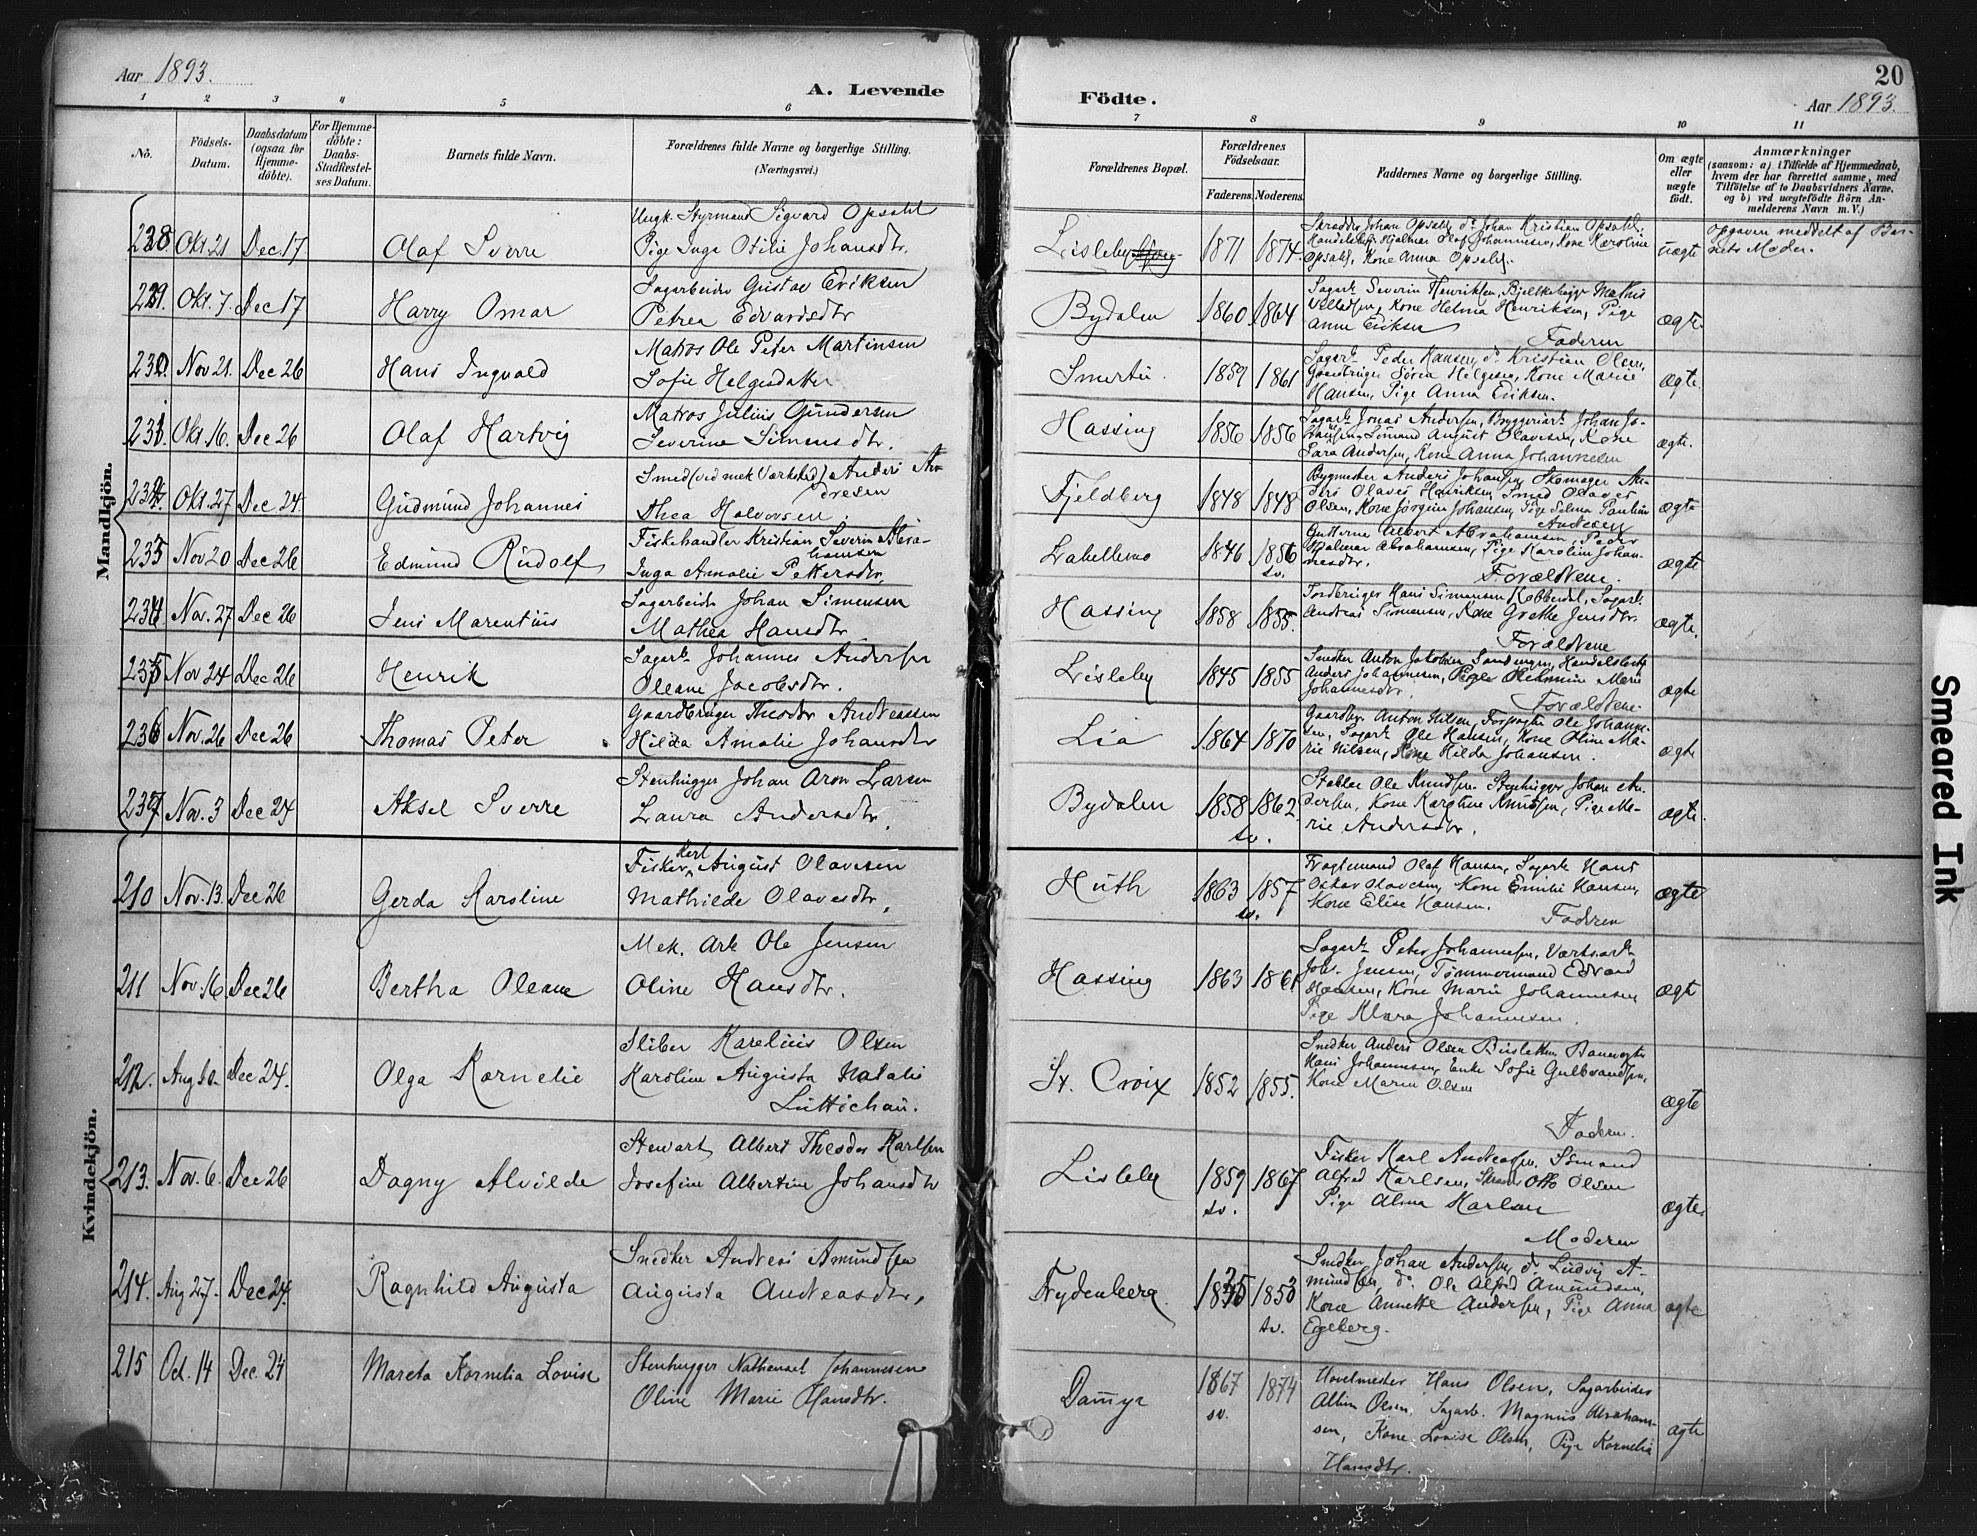 Aar 1893.
A. Levende
Födte.
20
Aar 1893.
1 2 3 4 5 6 7 8 9 10 11
No.
Födsels-
Datum.
Daabsdatum
(ogsaa for
Hjemme-
döbte).
For Hjemme-
döbte:
Daabs-
Stadfæstel-
ses Datum.
Barnets fulde Navn.
Forældrenes fulde Navne og borgerlige Stilling.
(Næringsvei.)
Forældrenes Bopæl.
Forældrenes
Födselsaar.
Faderens. Moderens.
Faddernes Navne og borgerlige Stilling.
Om ægte
eller
uægte
födt.
Anmærkninger
(saasom: a) i Tilfælde af Hjemmedaab,
hvem der har forrettet samme, med
Tilföielse af to Daabsvidners Navne,
og b) ved uægtefödte Börn An-
melderens Navn m. V.)
Mandkjön.
228 Okt. 21 Dec 17 Olaf Sverre
Ungk. Styrmand Sigvard Opsahl
Pige Inga Otilie Johansdtr.
Lisleby 1871 1874
Johan Opsahl, do Johan Kristian Opsahl,
Hjalmar Olaf Johannesen, Kone Karoline
Opsahl, Kone Anna Opsahl.
uægte
Opgaven meddelt af Bar-
nets Moder.
229. Okt. 7. Dec 17 Harry Omar
Sagarbeider Gustav Eriksen
Petrea Edvardsdtr
Bydalen 1860 1864
Sagarb. Severin Henriksen, Bjelkehugger Mathis
Kone Helma Henriksen, Pige
Anne Eriksen
Faderen
ægte
230. Nov 21. Dec 26 Hans Ingvald
Matros Ole Peter Martinsen
Sofie Helgesdatter
Smertu. 1859 1861
Sagarb. Peder Hansen, do Kristian Olsen,
Gaardbruger Søren Helgesen, Kone Marie
Hansen, Pige Anna Eriksen.
ægte.
231. Okt. 16. Dec 26 Olaf Hartvig
Matros Julius Gundersen
Severine Simensdtr.
Hassing 1856 1856
Sagarb. Jonas Andersen, Bryggeriarb. Johan Jo-
hansen, Sömand August Olavesen, Kone
Sara Andersen, Kone Anna Johannesen
ægte.
232. Okt. 27 Dec 24. Gudmund Johannes
Smed (ved mek Værksted) Anders An-
dresen
Thea Halvorsen.
Fjeldberg 1848 1848
Bygmester Anders Johansen, Skomager An-
ders Olaves Henriksen, Smed Olaves
Olsen, Kone Jørgine Johansen, Pige Selma Pauline
Andresen
ægte
233 Nov 20 Dec 26 Edmund Rudolf
Fiskehandler Kristian Severin Abra-
hamsen
Inga Amalie Pettersdtr.
Labellemo 1846 1856
sv.
Gutterne Albert Abrahamsen, Peder
Hjalmar Abrahamsen, Pige Karoline Johan-
nesdtr.
Forældrene.
ægte
234 Nov. 27 Dec 26 Jens Marentius
Sagarbeider Johan Simensen
Mathea Hansdtr
Hassing 1858 1855.
Jordbruger Hans Simensen Kobberdal, Sagarb.
Andreas Simensen, Kone Grethe Jensdtr.
Forældrene
ægte.
235 Nov 24 Dec 26 Henrik
Sagarb. Johannes Andersen
Oleane Jacobsdtr.
Lisleby 1845 1855
Snedker Anton Jakobsen Sandengen, Handelsbetj.
Anders Johannesen, Pige Marie
Johannesdtr.
Forældrene.
ægte
236 Nov. 26 Dec 26 Thomas Peter
Gaardbruger Theodor Andreassen
Hilda Amalie Johansdtr
Lia 1864 1870
Gaardbr. Anton Nilsen, Forpagter Ole Johanne-
sen, Sagarb. Ole Hansen, Kone Oline Ma-
rie Nilsen, Kone Hilda Johansen.
ægte
237 Nov. 3 Dec 24 Aksel Sverre
Stenhugger Johan Aron Larsen
Laura Andersdtr.
Bydalen 1858 1862.
sv.
Ole Knudsen, Stenhugger Johan An-
dersen, Kone Karoline Knudsen, Pige Ma-
rie Andersdtr.
ægte.
Kvindekjön.
210 Nov. 13. Dec 26 Gerda Karoline
Fisker Karl August Olavesen
Mathilde Olavesdtr.
Huth 1863 1857
sv.
Fragtemand Olaf Hansen, Sagarb. Hans
Oskar Olavesen, Kone Emilie Hansen,
Kone Elise Hansen.
Faderen
ægte
211 Nov. 16. Dec 26 Bertha Oleane
Mek. Arb Ole Jensen
Oline Hansdtr.
Hassing 1863 1861
Sagarb. Peter Johannesen, Værkstarb.
Johs. Jensen, Tømmermand Edvard
Hansen, Kone Marie Johannesen
Pige Klara Johannesen.
ægte
212. Aug 30. Dec 24. Olga Kornelie
Sliber Karelius Olsen
Karoline Augusta Natalie
Lüttichau.
St. Croix 1852 1855.
Snedker Anders Olsen Buskletten, Banevogter
Hans Johannesen, Enke Sofie Gulbrandsen,
Kone Maren Olsen
Faderen.
ægte
213. Nov. 6. Dec 26 Dagny Alvilde
Stewart Albert Theodor Karlsen
Josefine Albertine Johansdtr
Lisleby 1859 1867
sv.
Fisker Karl Andreasen, Sömand
Alfred Karlsen, Otto Olsen
Pige Alma Karlsen
Moderen
ægte.
214. Aug 27. Dec 24. Ragnhild Augusta
Snedker Andreas Amundsen
Augusta Andreasdtr.
Frydenberg 1853
sv.
Snedker Johan Andersen, do Ludvig A-
mundsen, do Ole Alfred Amundsen,
Kone Annette Andersen, Pige Anna
Egeberg.
ægte
215 Oct. 14 Dec. 24 Mareta Kornelia Lovise
Stenhugger Nathanael Johannesen
Oline Marie Hansdtr.
Dammyr 1867 1874
sv.
Hovelmester Hans Olsen, Sagarbeider
Albin Olsen, Sagarb. Magnus Abraham-
sen, Kone Lovise Olsen, Pige Kornelia
Hansdtr.
ægte
Smeared Ink